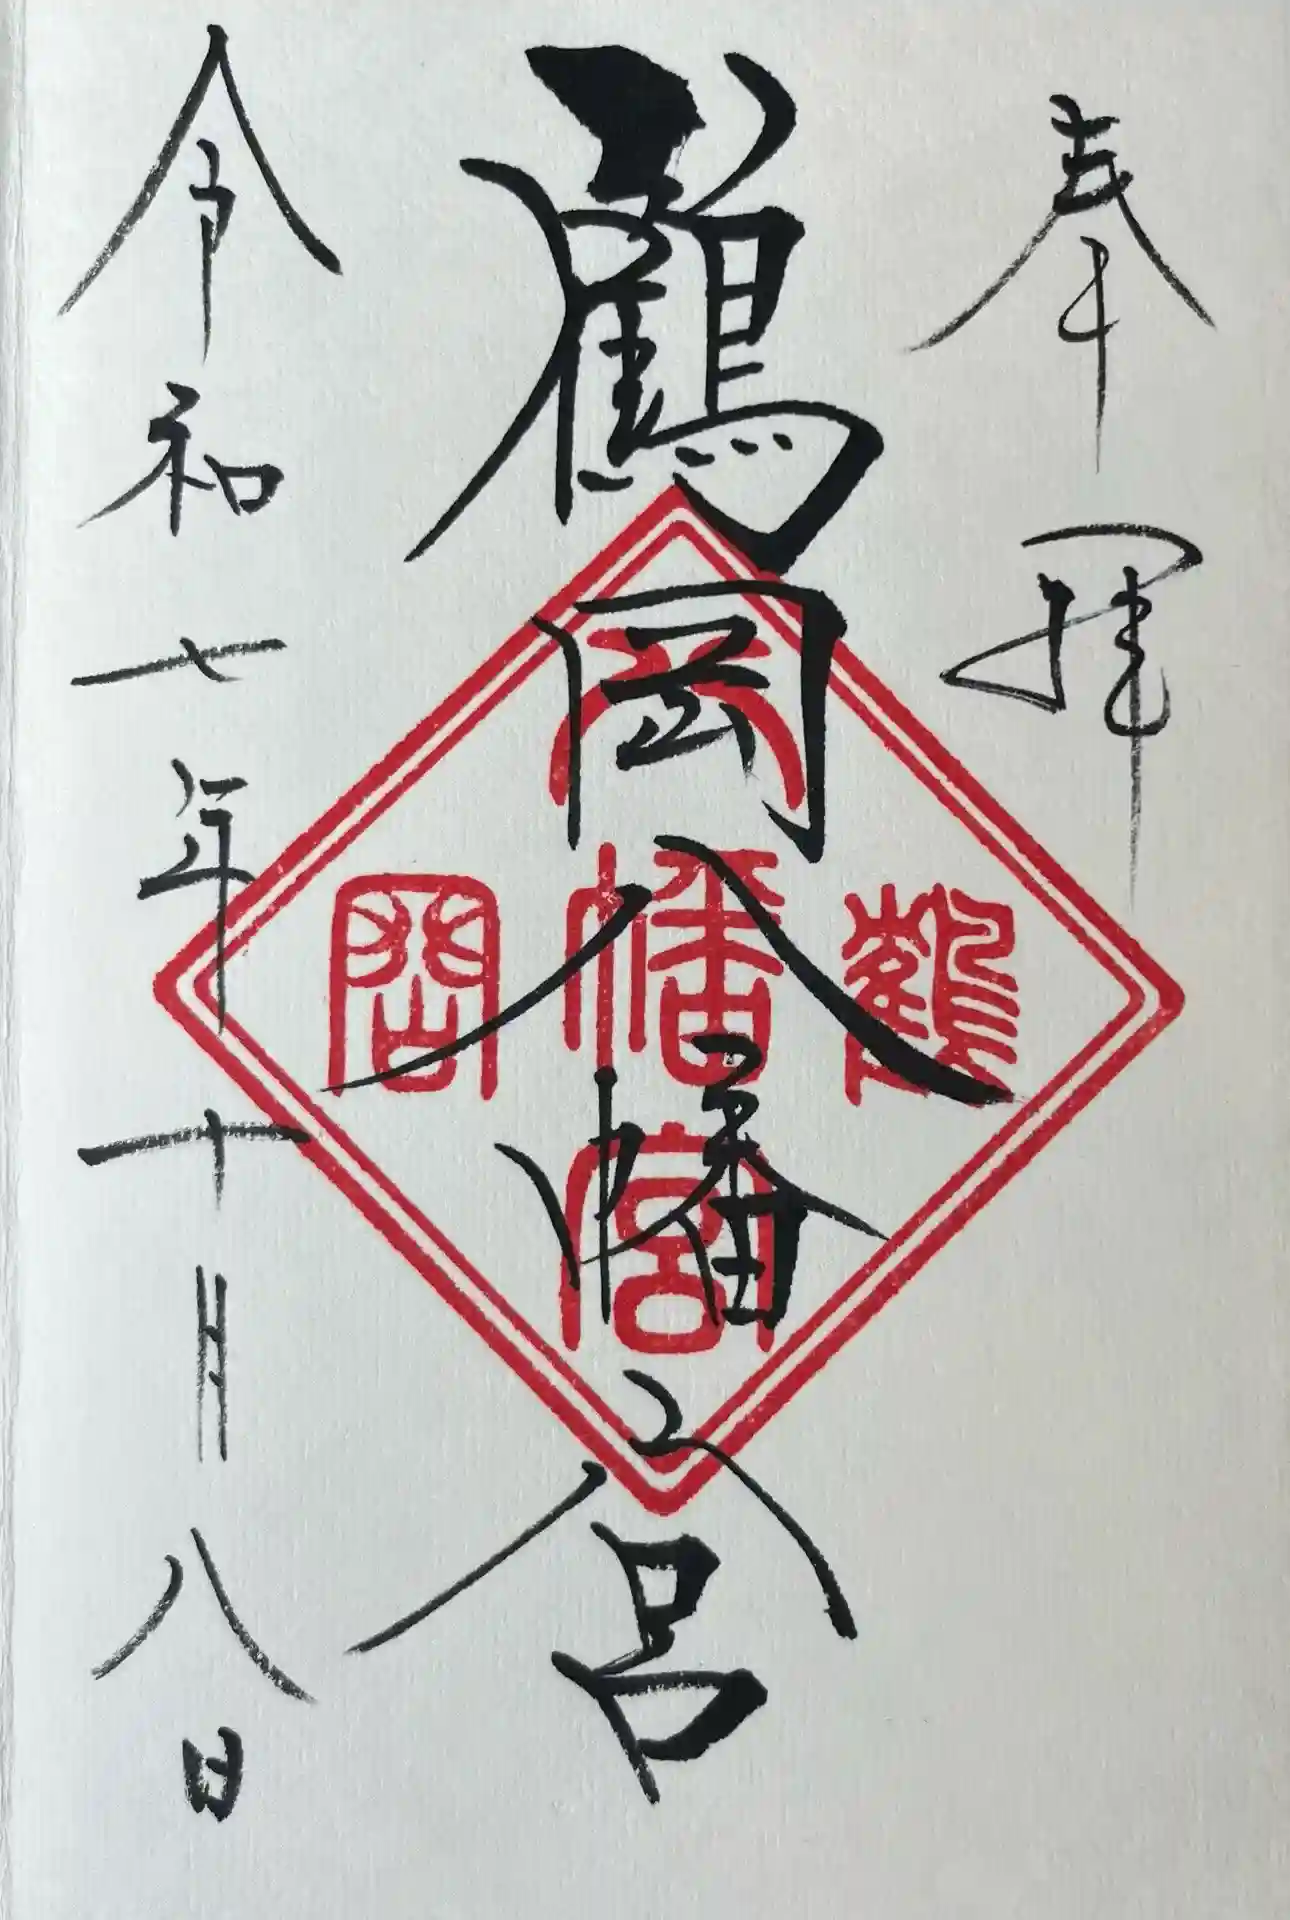 奉拝
鶴岡八幡宮
令和七年十月八日
鶴
八幡宮
岡